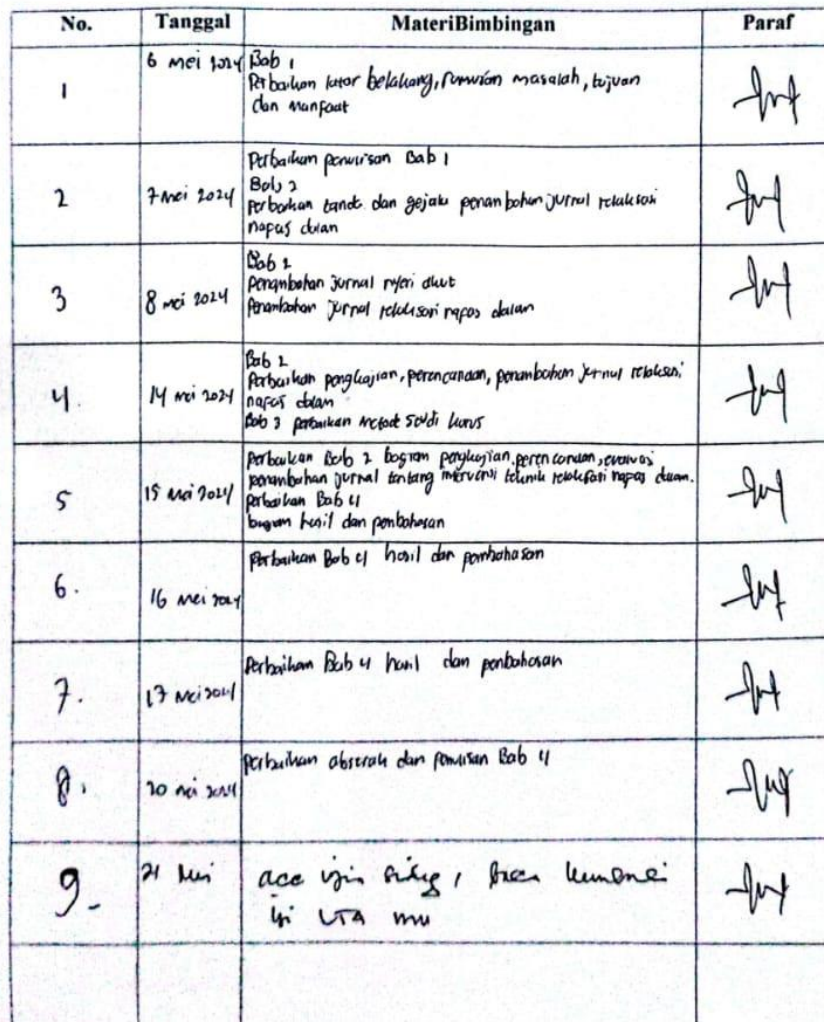 No. Tanggal MateriBimbingan Paraf
1 6 Mei 2024 Bab 1
Perbaikan latar belakang, rumusan masalah, tujuan
dan manfaat
Perbaikan penulisan Bab 1
2 7 Mei 2024 Bab 2
Perbaikan tanda dan gejala penambahan jurnal relaksasi
napas dalam
Bab 2
3 8 mei 2024 Penambahan jurnal nyeri akut
Penambahan jurnal relaksasi napas dalam
Bab 2
4. 14 mei 2024 Perbaikan pengkajian, perencanaan, penambahan jurnal relaksasi
napas dalam
Bab 3 perbaikan metode studi kasus
Perbaikan Bab 2 bagian pengkajian, perencanaan, evaluasi
5 15 Mei 2024 penambahan jurnal tentang intervensi teknik relaksasi napas dalam.
perbaikan Bab 4
bagian hasil dan pembahasan
6. 16 Mei 2024 Perbaikan Bab 4 hasil dan pembahasan
7. 17 Mei 2024 Perbaikan Bab 4 hasil dan pembahasan
8. 20 mei 2024 perbaikan abstrak dan penulisan Bab 4
9. 21 Mei acc ijin sidang,
isi KTA mu